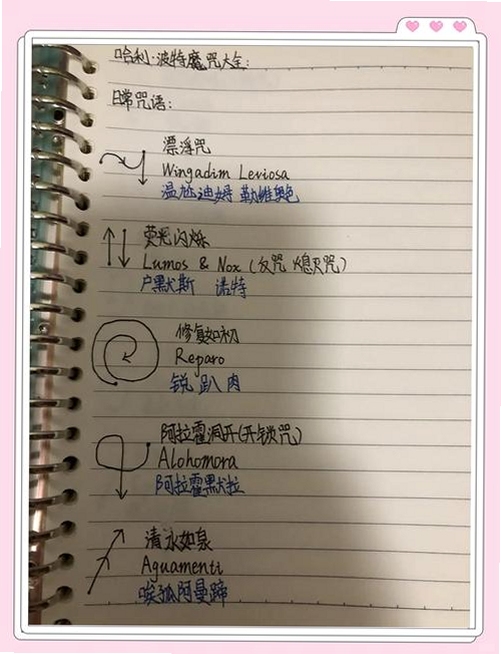 哈利·波特魔咒大全:
日常咒语:
漂浮咒
Wingadim Leviosa
温尬迪姆 勒维奥色
荧光闪烁
Lumos & Nox (反咒 熄灭咒)
卢默斯 诺特
修复如初
Reparo
锐趴肉
阿拉霍洞开(开锁咒)
Alohomora
阿拉霍默拉
清水如泉
Aguamenti
唉孤阿曼蹄